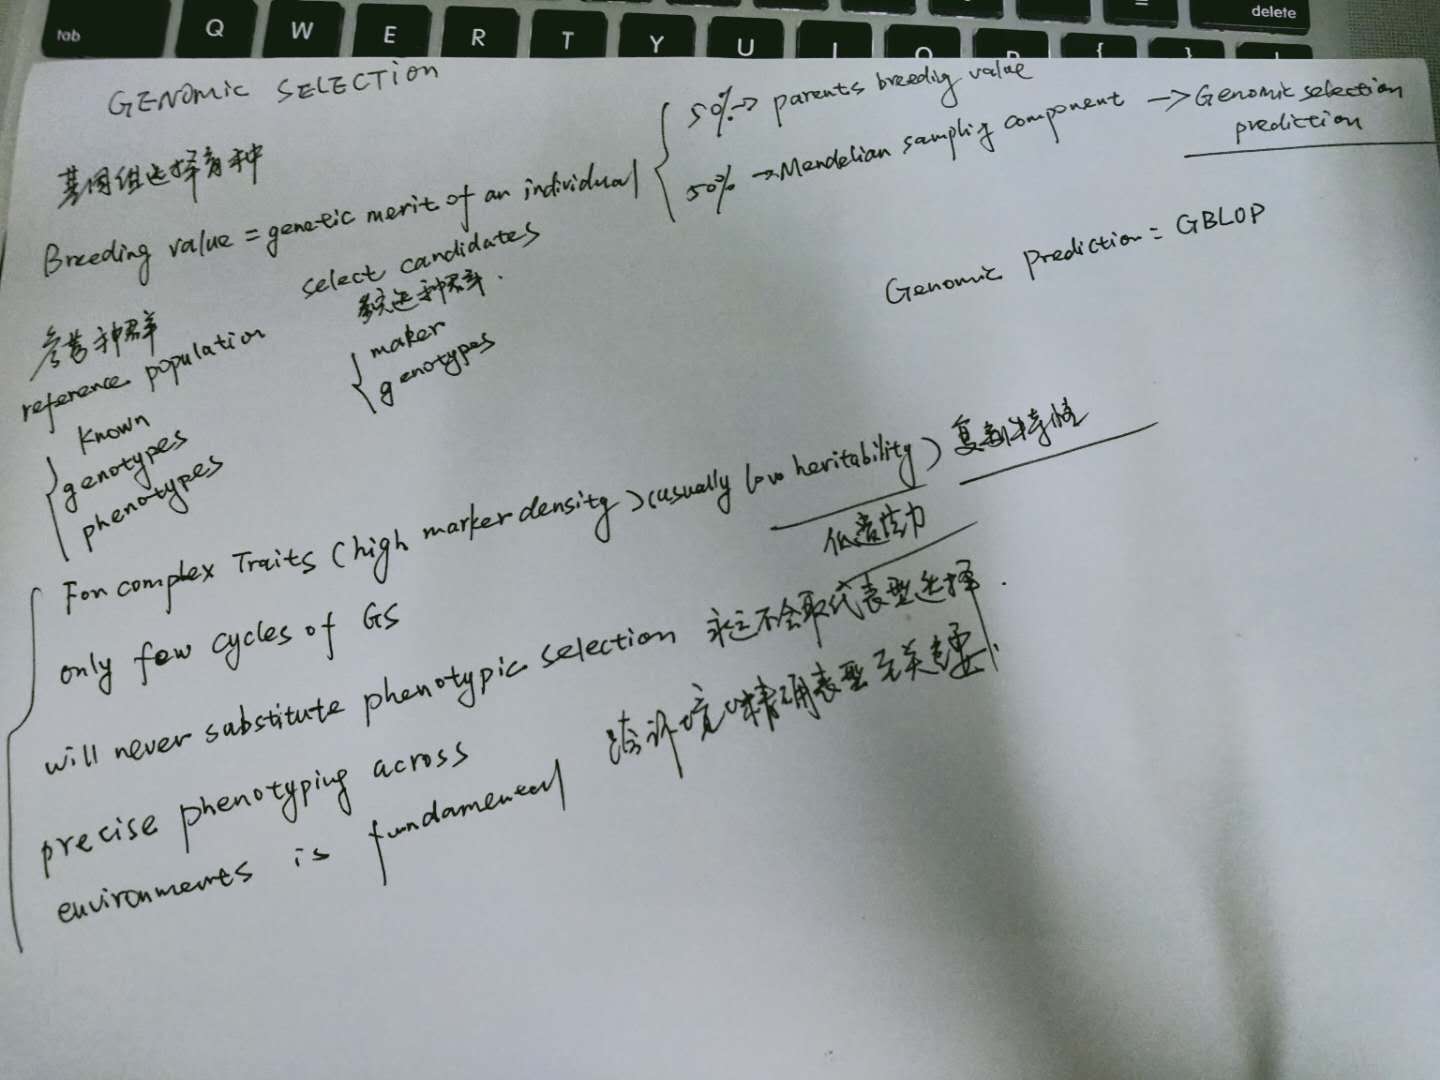 tab Q W E R T Y U I O P { } delete
GENOMIC SELECTION
基因组选择育种
Breeding value = genetic merit of an individual
50% → parents breeding value
50% → Mendelian sampling component → Genomic selection
prediction
Genomic Prediction = GBLOP
select candidates
候选种群.
maker
genotypes
参考种群
reference population
Known
genotypes
phenotypes
For complex Traits (high marker density) (usually low heritability) 复杂特性
低遗传力
only few cycles of GS
will never substitute phenotypic selection 永远不会取代表型选择.
precise phenotyping across
environments is fundamental 精确表型至关重要